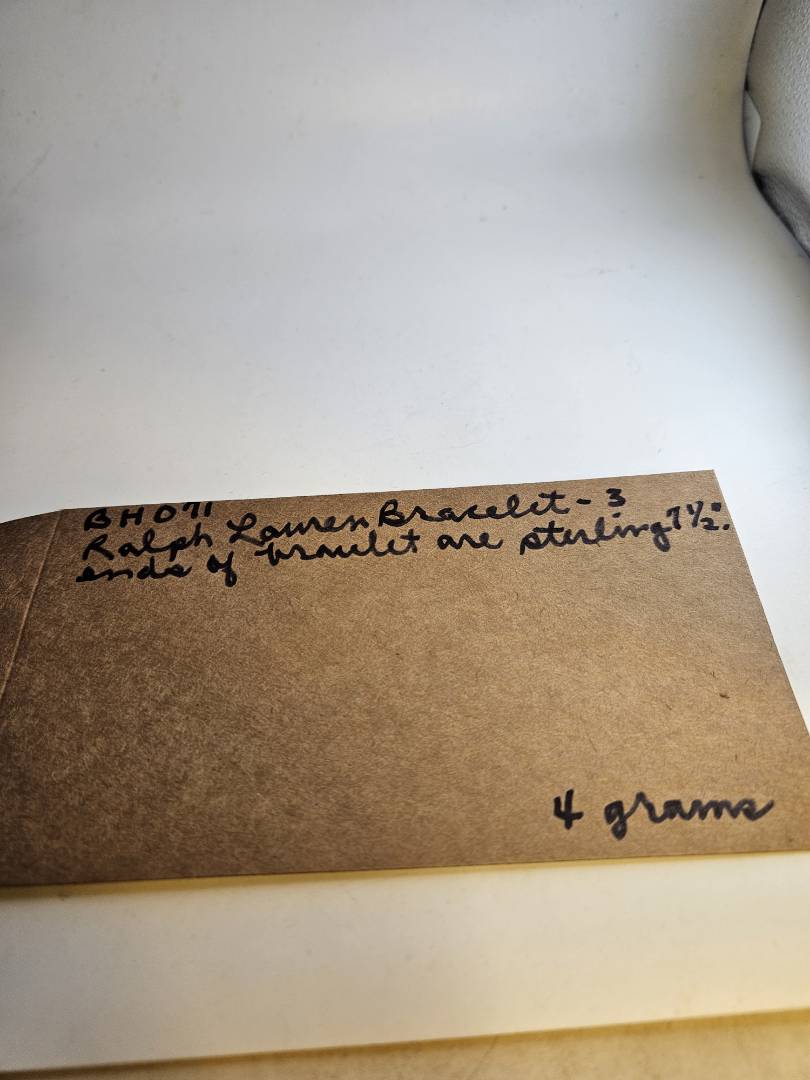 BH071
Ralph Lauren Bracelet - 3
ends of bracelet are sterling 7 1/2".
4 grams